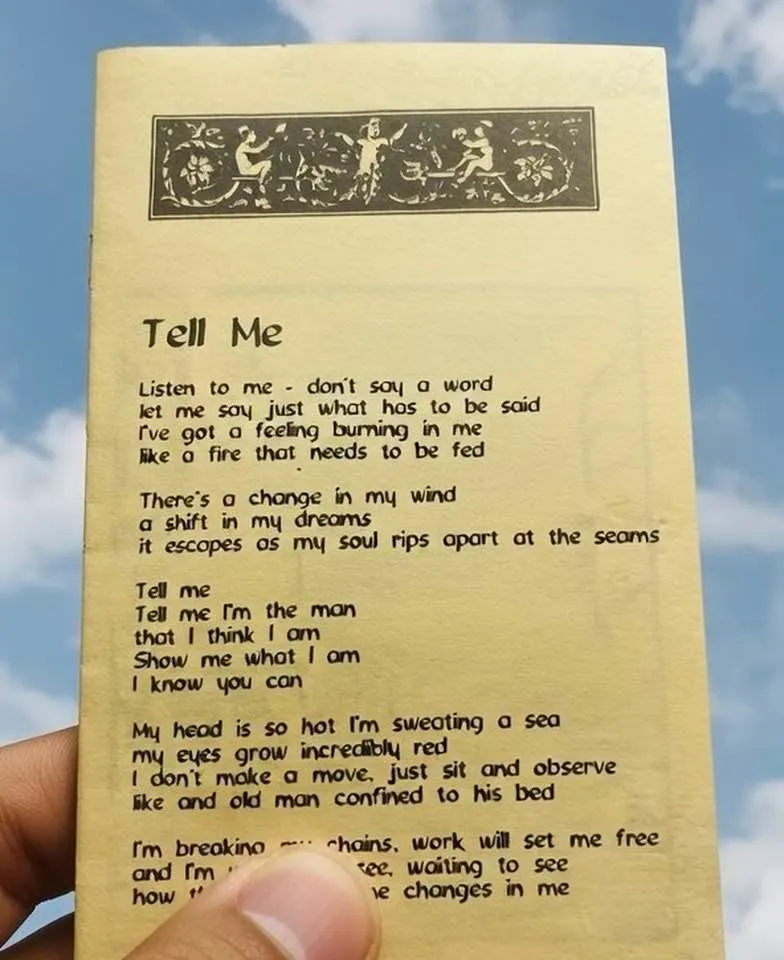 Tell Me
Listen to me - don't say a word
let me say just what has to be said
I've got a feeling burning in me
like a fire that needs to be fed
There's a change in my wind
a shift in my dreams
it escapes as my soul rips apart at the seams
Tell me
Tell me I'm the man
that I think I am
Show me what I am
I know you can
My head is so hot I'm sweating a sea
my eyes grow incredibly red
I don't make a move, just sit and observe
like and old man confined to his bed
I'm breaking chains, work will set me free
and I'm waiting to see
how changes in me